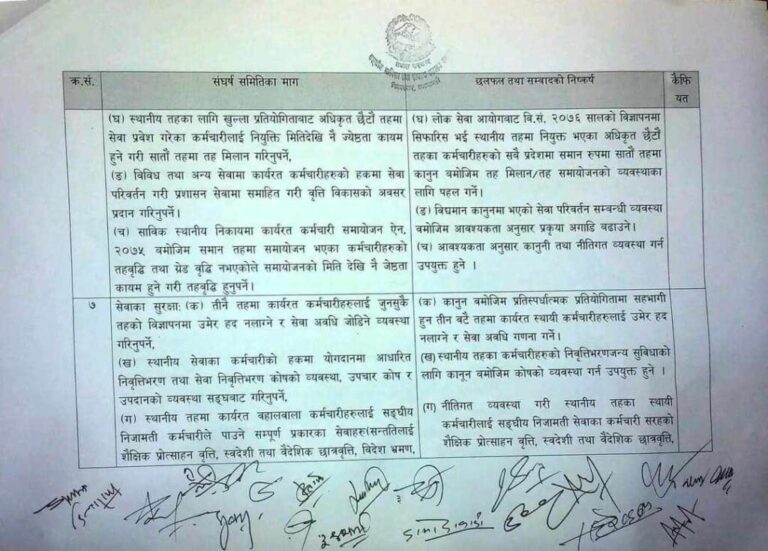 क्र.सं.
संघर्ष समितिका माग
छलफल तथा सम्वादको निष्कर्ष
कैफियत
(घ) स्थानीय तहका लागि खुल्ला प्रतियोगिताबाट अधिकृत छैटौं तहमा
सेवा प्रवेश गरेका कर्मचारीलाई नियुक्ति मितिदेखि नै ज्येष्ठता कायम
हुने गरी सातौं तहमा तह मिलान गरिनुपर्ने,
(ङ) विविध तथा अन्य सेवामा कार्यरत कर्मचारीका हकमा सेवा
परिवर्तन गरी प्रशासन सेवामा समाहित गरी वृत्ति विकासको अवसर
प्रदान गरिनुपर्ने।
(च) साविक स्थानीय निकायमा कार्यरत कर्मचारी समायोजन ऐन,
२०७५ बमोजिम समान तहमा समायोजन भएका कर्मचारीहरुको
तहवृद्धि तथा ग्रेड वृद्धि नभएकोले समायोजनको मिति देखि नै जेष्ठता
कायम हुने गरी तहवृद्धि हुनुपर्ने।
(घ) लोक सेवा आयोगबाट वि.सं. २०७६ सालको विज्ञापनमा
सिफारिस भई स्थानीय तहमा नियुक्त भएका अधिकृत छैटौं
तहका कर्मचारीहरुको सवै प्रदेशमा समान रुपमा सातौं तहमा
कानुन वमोजिम तह मिलान/तह समायोजनको व्यवस्थाका
लागि पहल गर्ने।
(ङ) विद्यमान कानुनमा भएको सेवा परिवर्तन सम्वन्धी व्यवस्था
बमोजिम आवश्यकता अनुसार प्रकृया अगाडि वढाउने।
(च) आवश्यकता अनुसार कानुनी तथा नीतिगत व्यवस्था गर्न
उपयुक्त हुने ।
७
सेवाका सुरक्षा: (क) तीनै तहमा कार्यरत कर्मचारीहरुलाई जुनसुकै
तहको विज्ञापनमा उमेर हद नलाग्ने र सेवा अवधि जोडिने व्यवस्था
गरिनुपर्ने,
(ख) स्थानीय सेवाका कर्मचारीको हकमा योगदानमा आधारित
निवृत्तिभरण तथा सेवा निवृत्तिभरण कोषको व्यवस्था, उपचार कोष र
उपदानको व्यवस्था सङ्घबाट गरिनुपर्ने,
(ग) स्थानीय तहमा कार्यरत वहालवाला कर्मचारीहरुलाई सङ्घीय
निजामती कर्मचारीले पाउने सम्पूर्ण प्रकारका सेवाहरु(सन्ततिलाई
शैक्षिक प्रोत्साहन वृत्ति, स्वदेशी तथा वैदेशिक छात्रवृत्ति, विदेश भ्रमण,
(क) कानुन वमोजिम प्रतिस्पर्धात्मक प्रतियोगितामा सहभागी
हुन तीन वटै तहमा कार्यरत स्थायी कर्मचारीहरुलाई उमेर हद
नलाग्ने र सेवा अवधि गणना गर्ने।
(ख) स्थानीय तहका कर्मचारीहरुको निवृत्तिभरणजन्य सुविधाको
लागि कानून वमोजिम कोषको व्यवस्था गर्न उपयुक्त हुने ।
(ग) नीतिगत व्यवस्था गरी स्थानीय तहका स्थायी
कर्मचारीलाई सङ्घीय निजामती सेवाका कर्मचारी सरहको
शैक्षिक प्रोत्साहन वृत्ति, स्वदेशी तथा वैदेशिक छात्रवृत्ति,